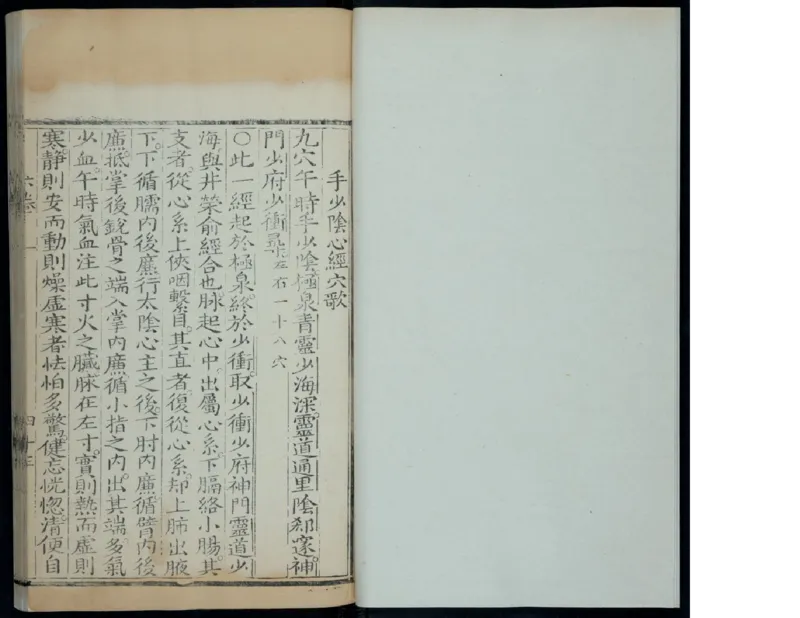 手少陰心經穴歌
九穴午時手少陰極泉青靈少海深靈道通里陰郄邃神
門少府少衝尋左右一十八穴
○此一經起於極泉終於少衝取少衝少府神門靈道少
海與井滎俞經合也脉起心中出屬心系下膈絡小腸其
支者從心系上俠咽繫目其直者復從心系却上肺出腋
下下循臑內後廉行太陰心主之後下肘內廉循臂內後
廉抵掌後銳骨之端入掌內廉循小指之內出其端多氣
少血午時氣血注此丁火之臟脉在左寸實則熱而虛則
寒靜則安而動則燥虛寒者怯怕多驚健忘恍惚清便自
六卷
四十三